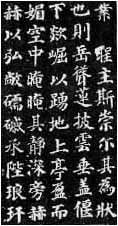 業 聖主斯崇爾其為狀
也則岳聳蓮披雲垂蓋偃
下欻崛以踴地上亭盈而
媚空中晻晻其靜深旁赫
赫以弘敞礝磩承陛琅玕